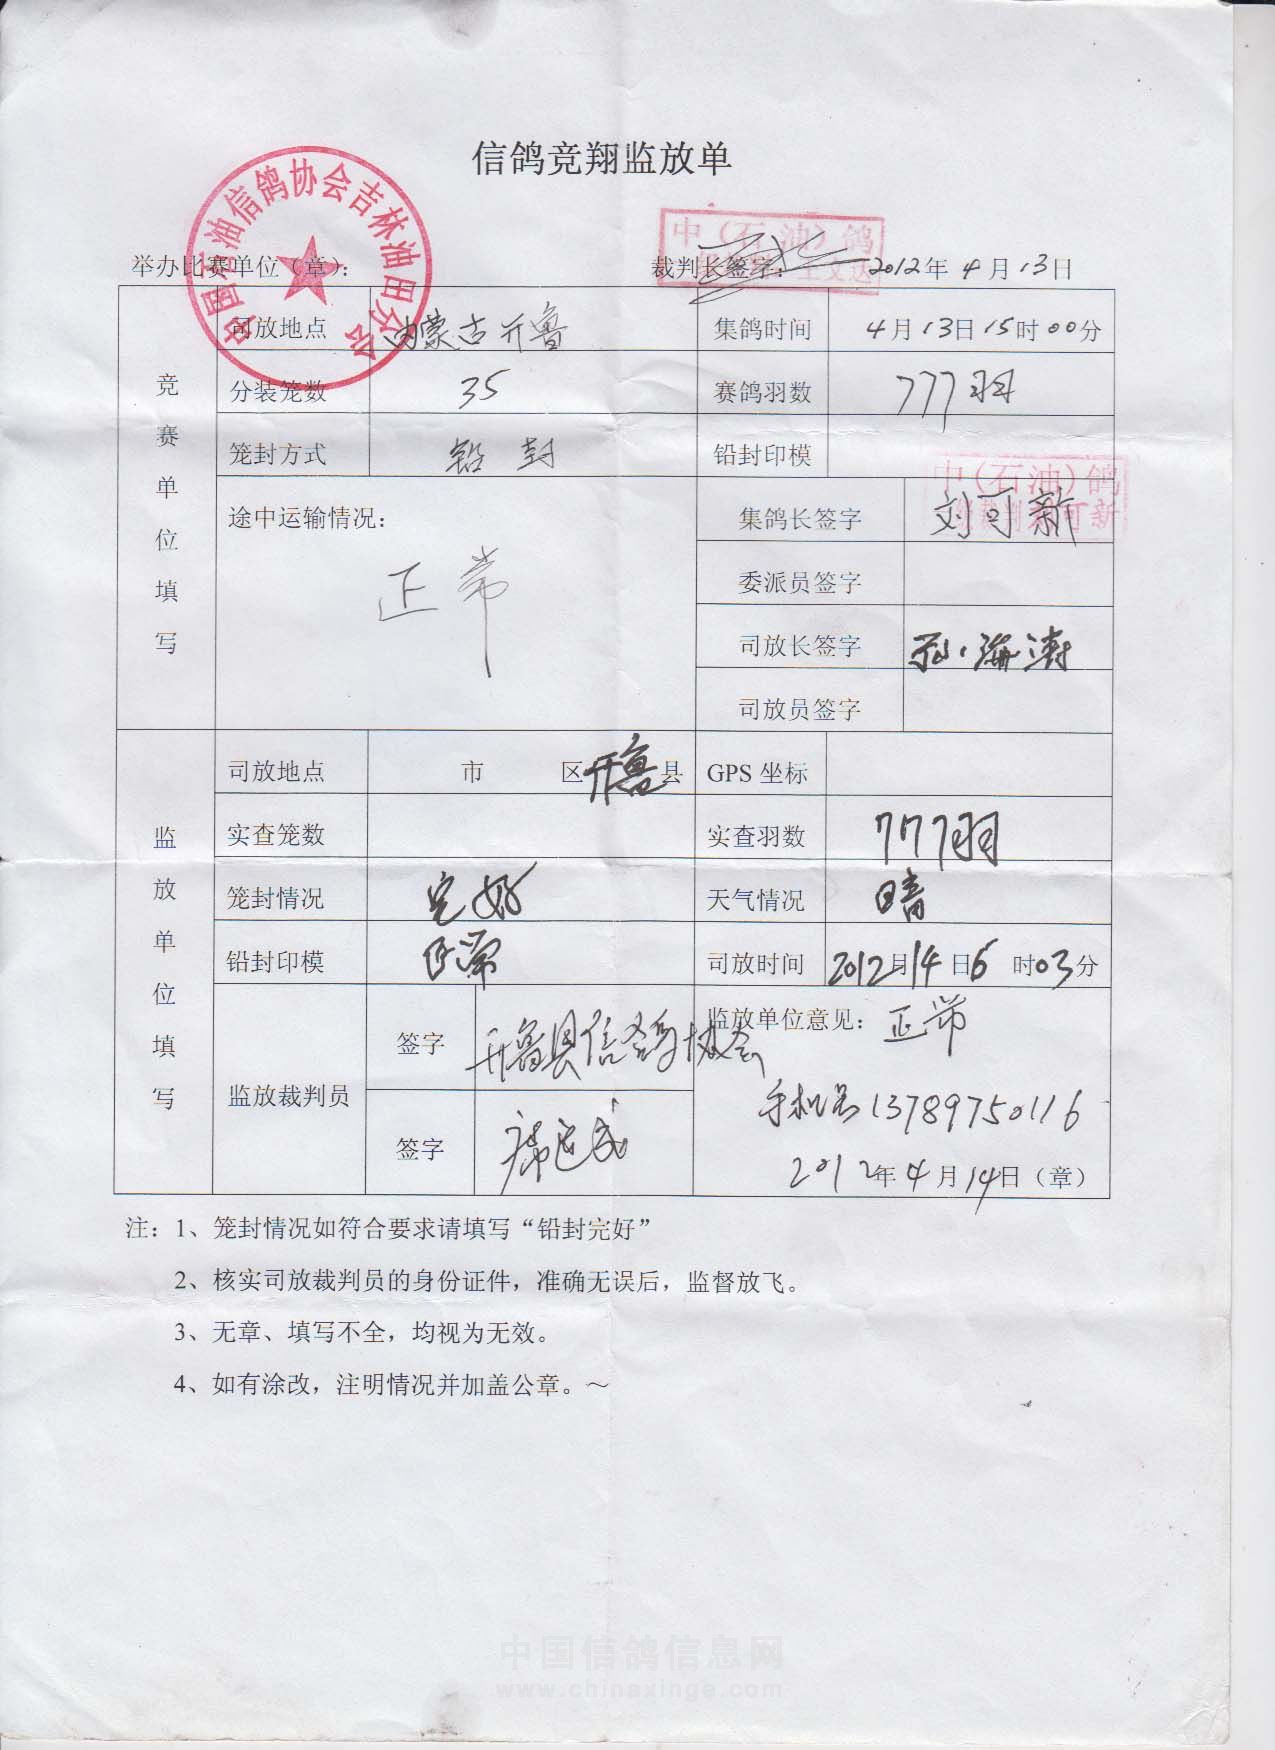 信鸽竞翔监放单
中国石油信鸽协会吉林油田分会
中（石油）鸽
举办比赛单位（章）： 裁判长签字： 2012年 4月13日
竞赛单位填写
司放地点 内蒙古开鲁 集鸽时间 4月13日15时00分
分装笼数 35 赛鸽羽数 777羽
笼封方式 铅封 铅封印模
中（石油）鸽
裁判刘可新
途中运输情况： 正常
集鸽长签字 刘可新
委派员签字
司放长签字 孙海涛
司放员签字
监放单位填写
司放地点 市 区 开鲁县 GPS 坐标
实查笼数 实查羽数 777羽
笼封情况 完好 天气情况 晴
铅封印模 正常 司放时间 2012月14日6时03分
监放裁判员
签字 开鲁县信鸽协会
签字
监放单位意见： 正常
手机号13789750116
2012年4月14日（章）
注：1、笼封情况如符合要求请填写“铅封完好”
2、核实司放裁判员的身份证件，准确无误后，监督放飞。
3、无章、填写不全，均视为无效。
4、如有涂改，注明情况并加盖公章。～
中国信鸽信息网
www.chinaxinge.com